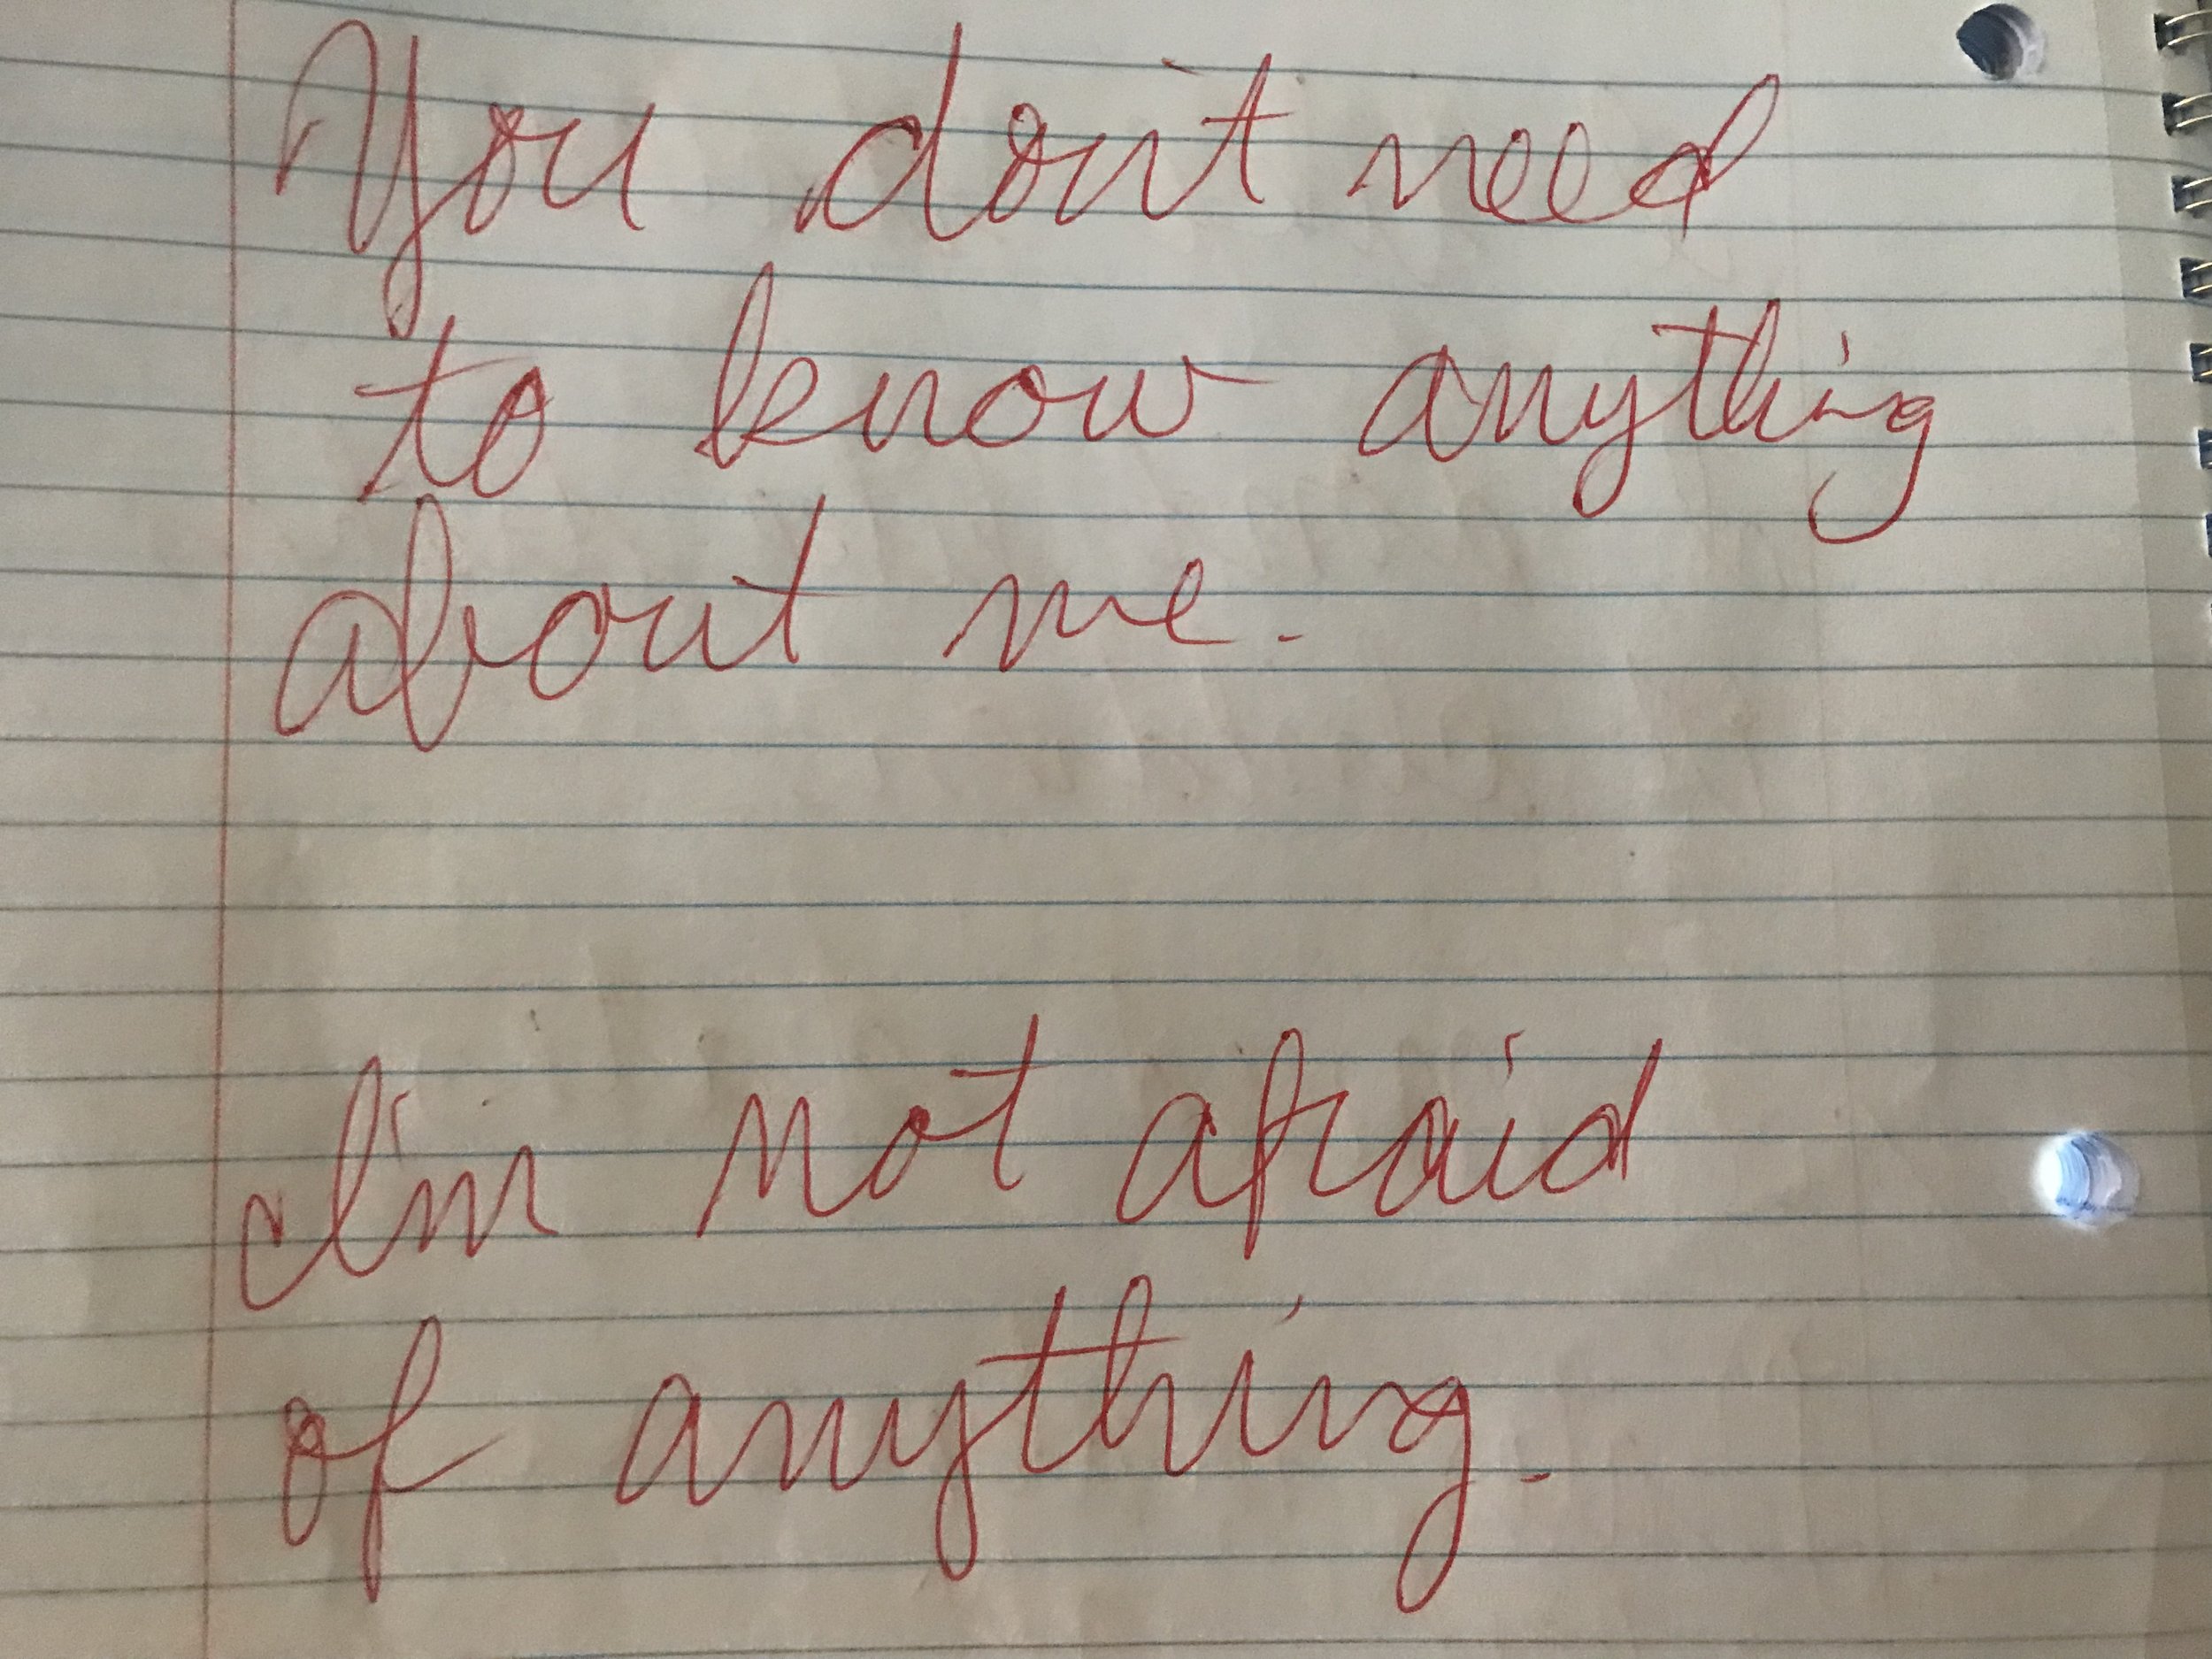 You don't need
to know anything
about me.
I'm not afraid
of anything.